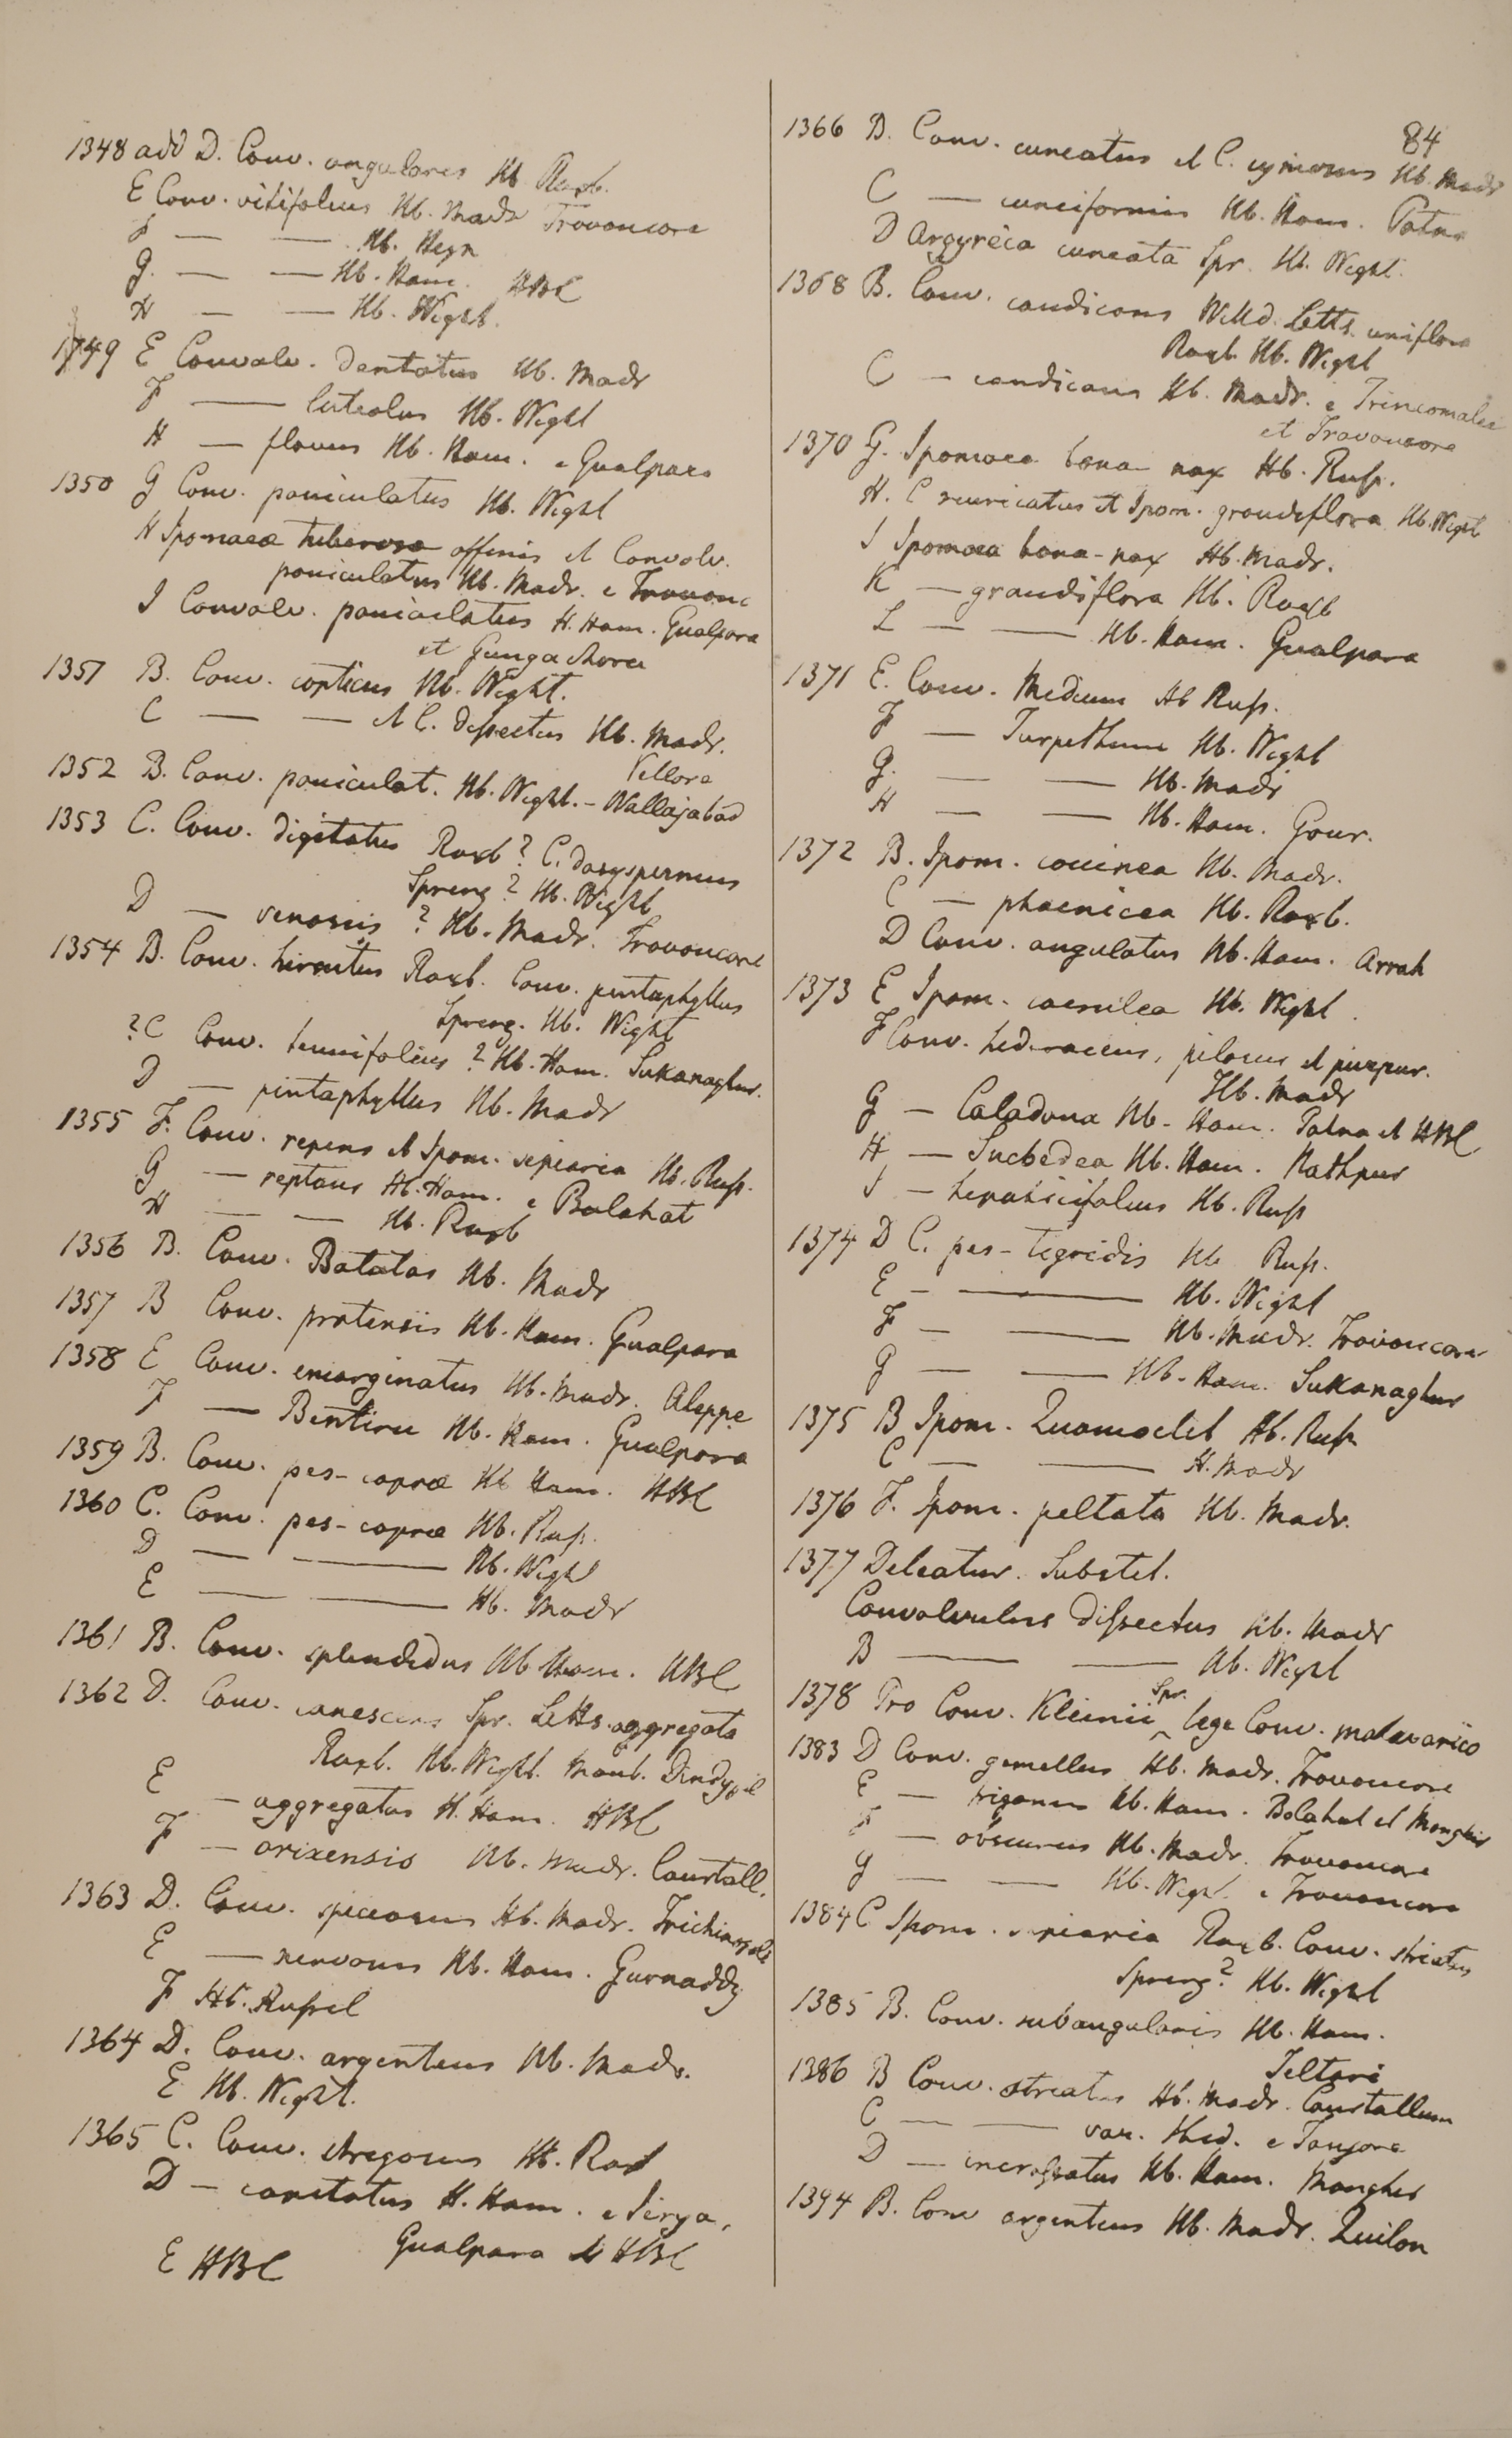 1348 add D. Conv. angularis Hb Roxb.
E Conv. vitifolius Hb. Madr Travancore
F — — Hb. Heyn
G. — — Hb. Ham. HBC
H — — Hb. Wight.
1349 E Convolv. dentatus Hb. Madr
F — luteolus Hb. Wight
H — flavus Hb. Ham. e Gualpara
1350 G Conv. paniculatus Hb. Wight
H Ipomaea tuberosa affinis et Convolv.
paniculatus Hb. Madr. e Travanc
I Convolv. paniculatus H. Ham. Gualpara
et Gungachora
1351 B. Conv. copticus Hb. Wight.
C — — et C. dissectus Hb. Madr.
Vellore
1352 B. Conv. paniculat. Hb. Wight. – Wallajabad
1353 C. Conv. digitatus Roxb? C. dasyspermus
Spreng? Hb. Wight
D — venosus? Hb. Madr. Travancore
1354 B. Conv. hirsutus Roxb. Conv. pentaphyllus
Spreng. Hb. Wight
?C Conv. tenuifolius? Hb. Ham. Sukanaghur.
D — pentaphyllus Hb. Madr
1355 F. Conv. repens et Ipom. sepiaria Hb. Rufs.
G — reptans Hb. Ham. e Balahat
H — — Hb. Roxb
1356 B. Conv. Batatas Hb. Madr
1357 B Conv. pratensis Hb. Ham. Gualpara
1358 E Conv. emarginatus Hb. Madr. Aleppe
F — Bentiru Hb. Ham. Gualpara
1359 B. Conv. pes-caprae Hb Ham. HBC
1360 C. Conv. pes-caprae Hb. Rufs.
D — — Hb. Wight
E — — Hb. Madr
1361 B. Conv. splendidus Hb Ham. HBC
1362 D. Conv. canescens Spr. Letts. aggregata
Roxb. Hb. Wight. Mont. Dindygul
E — aggregatus H. Ham. HBC
F — orixensis Hb. Madr. Courtall.
1363 D. Conv. speciosus Hb. Madr. Trichinopoly
E — nervosus Hb. Ham. Gurnaddy
F Hb. Rufsel
1364 D. Conv. argenteus Hb. Madr.
E Hb. Wight.
1365 C. Conv. strigosus Hb. Rox
D — capitatus H. Ham. e Sirya,
Gualpara et HBC
E HBC
84
1366 B. Conv. cuneatus et C. cymosus Hb. Madr
C — cuneiformis Hb. Ham. Patna
D Argyreia cuneata Spr. Hb. Wight.
1368 B. Conv. candicans Willd. Letts. uniflora
Roxb. Hb. Wight
C — candicans Hb. Madr. e Trincomalee
et Travancore
1370 G. Ipomoea bona-nox Hb. Rufs.
H. C muricatus et Ipom. grandiflora Hb. Wight
I Ipomoea bona-nox Hb. Madr.
K — grandiflora Hb. Roxb
L — — Hb. Ham. Gualpara
1371 E. Conv. Medium Hb Rufs.
F — Turpethum Hb. Wight
G. — — Hb. Madr
H — — Hb. Ham. Gour.
1372 B. Ipom. coccinea Hb. Madr.
C — phoenicea Hb. Roxb.
D Conv. angulatus Hb. Ham. Arrah
1373 E Ipom. caerulea Hb. Wight
F Conv. hederaceus, pilosus et purpur.
Hb. Madr
G — Caladona Hb. Ham. Patna et HBC
H — Sucbedea Hb. Ham. Nathpur
I — hepaticifolius Hb. Rufs
1374 D C. pes-tigridis Hb Rufs.
E — — Hb. Wight
F — — Hb. Madr. Travancore
G — — Hb. Ham. Sukanaghur
1375 B Ipom. Quamoclit Hb. Rufs
C — — H. Madr
1376 F. Ipom. peltata Hb. Madr.
1377 Deleatur. Substit.
Convolvulus difsectus Hb. Madr
B — — Hb. Wight
1378 Pro Conv. Kleinii Spr. lege Conv. malabarico
1383 D Conv. gemellus Hb. Madr. Travancore
E — trigonus Hb. Ham. Bolahat et Monghir
F — obscurus Hb. Madr. Travancore
G — — Hb. Wight. e Travancore
1384 C Ipom. sepiaria Roxb. Conv. striatus
Spreng? Hb. Wight
1385 B. Conv. subangularis Hb. Ham.
Teltari
1386 B Conv. striatus Hb. Madr. Courtallum
C — — var. Ibid. e Tanjore
D — incrassatus Hb. Ham. Monghir
1394 B. Conv argenteus Hb. Madr. Quilon